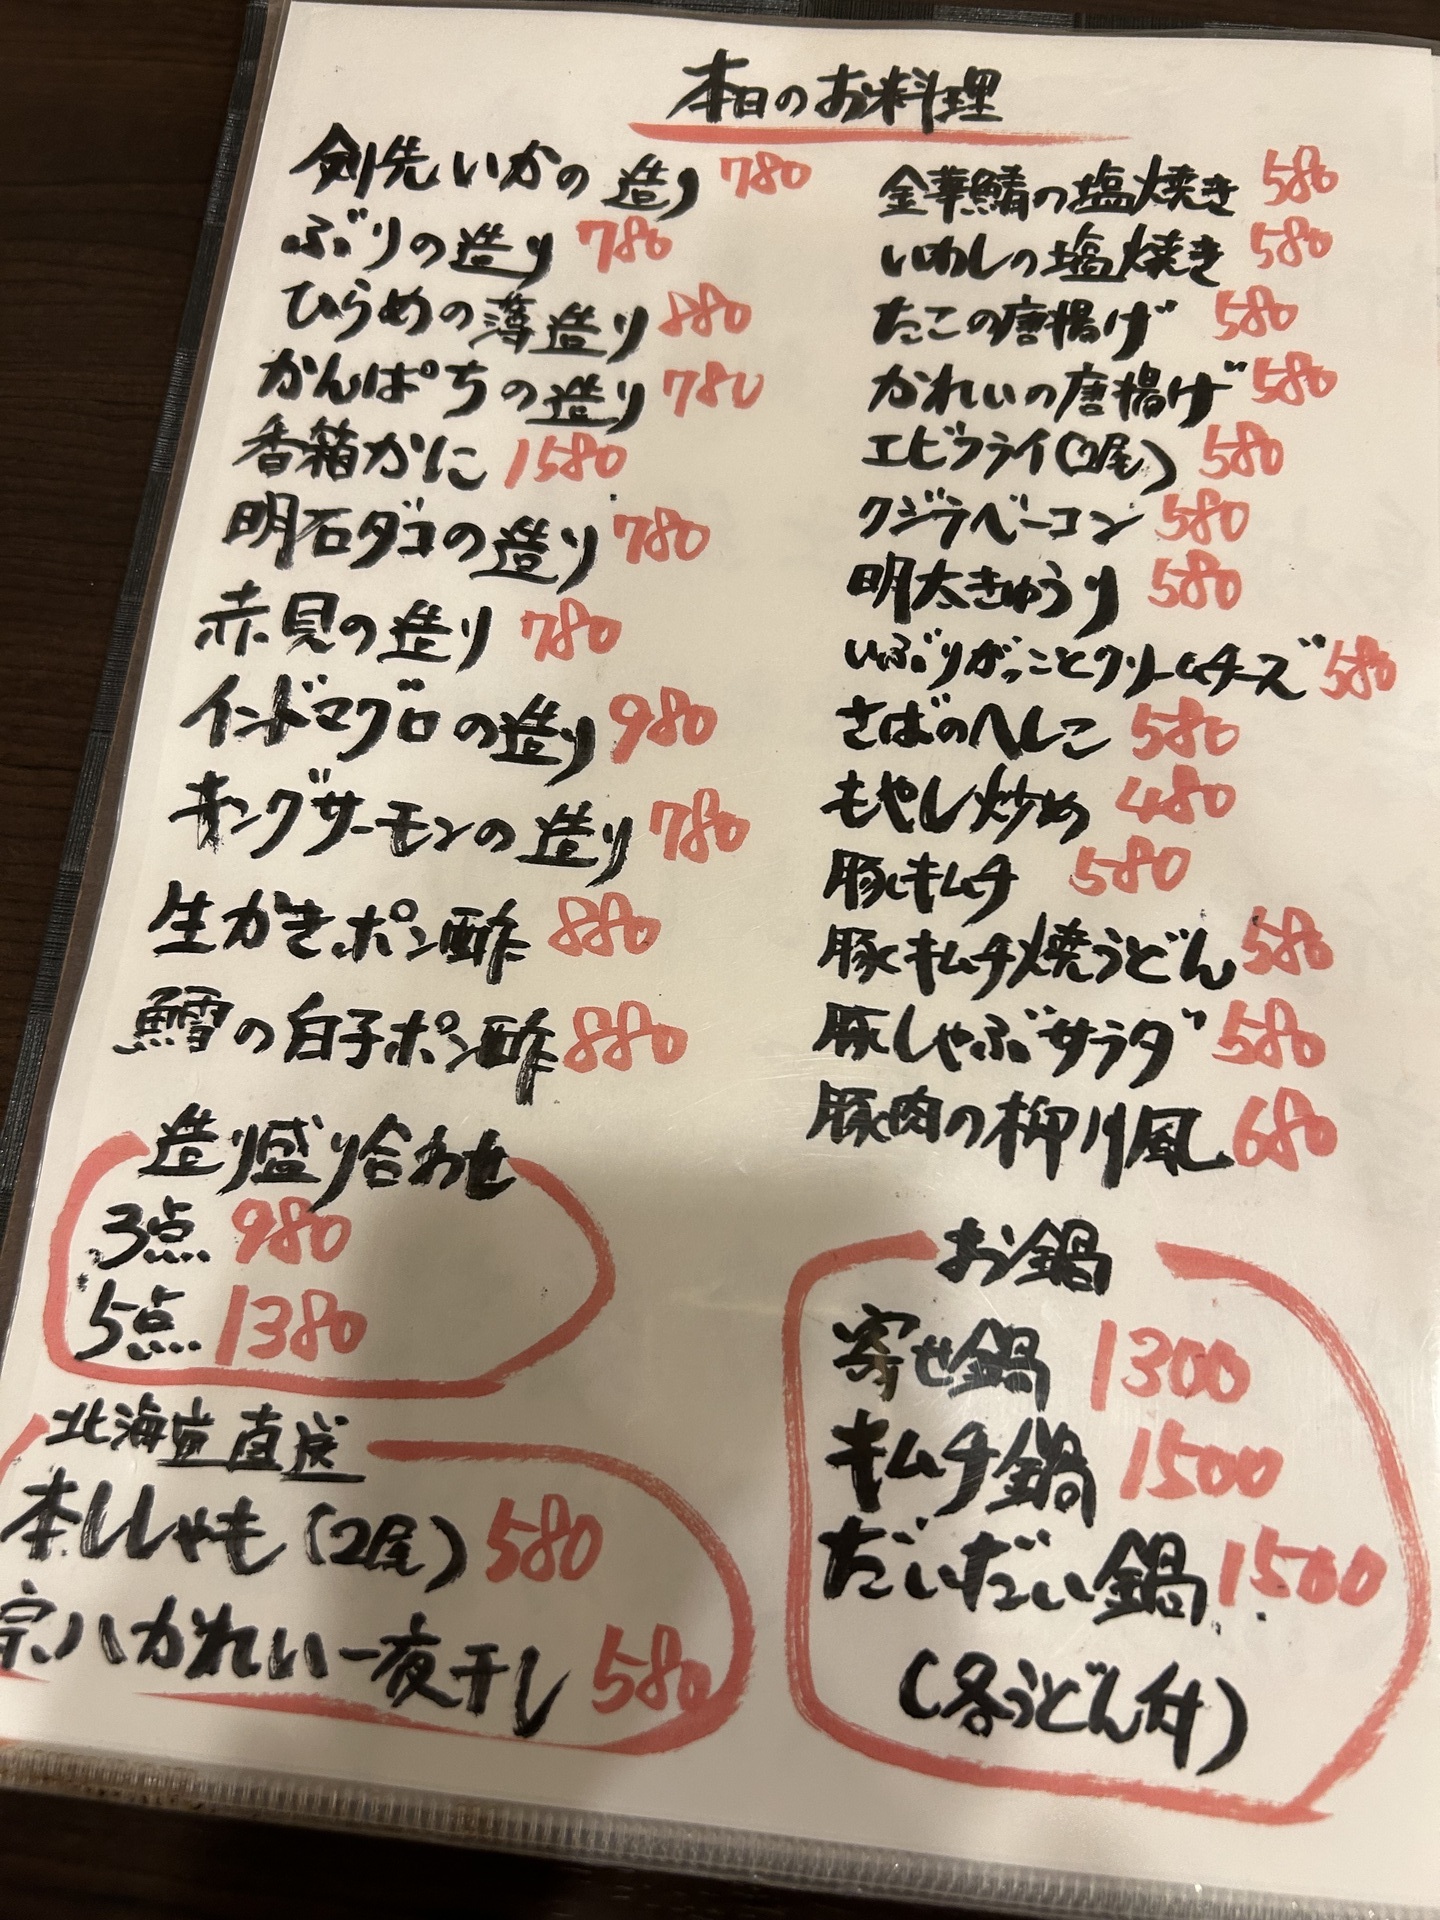 本日のお料理
剣先いかの造り 780
ぶりの造り 780
ひらめの薄造り 880
かんぱちの造り 780
香箱かに 1580
明石ダコの造り 780
赤貝の造り 780
インドマグロの造り 980
キングサーモンの造り 780
生かきポン酢 880
鱈の白子ポン酢 880
造り盛り合わせ
3点 980
5点 1380
北海道直送
本ししゃも(2尾) 580
宗八かれい一夜干し 580
金華鯖の塩焼き 580
いわしの塩焼き 580
たこの唐揚げ 580
かれいの唐揚げ 580
エビフライ(2尾) 580
クジラベーコン 580
明太きゅうり 580
いぶりがっことクリームチーズ 580
さばのへしこ 580
もやし炒め 480
豚キムチ 580
豚キムチ焼うどん 580
豚しゃぶサラダ 580
豚肉の柳川風 680
お鍋
寄せ鍋 1300
キムチ鍋 1500
だいだい鍋 1500
(各うどん付)